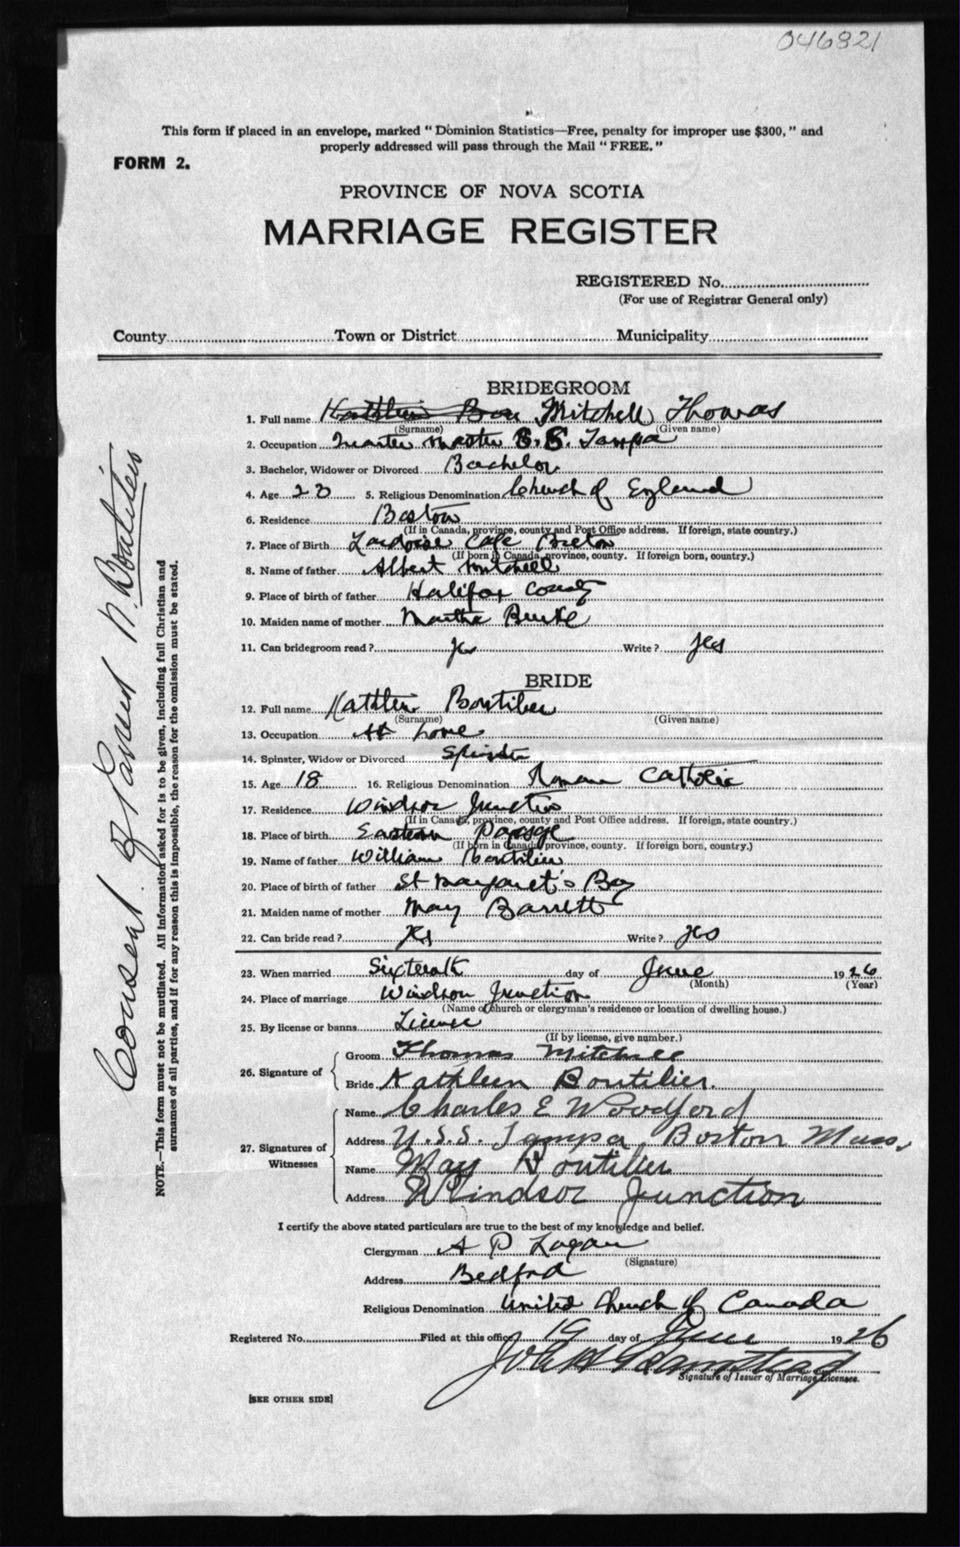 046821
This form if placed in an envelope, marked "Dominion Statistics—Free, penalty for improper use $300," and
properly addressed will pass through the Mail "FREE."
FORM 2.
PROVINCE OF NOVA SCOTIA
MARRIAGE REGISTER
REGISTERED No.
(For use of Registrar General only)
County Town or District Municipality
BRIDEGROOM
1. Full name Mitchell Thomas
(Surname) (Given name)
2. Occupation master S.S. Tampa
3. Bachelor, Widower or Divorced Bachelor
4. Age 23 5. Religious Denomination Church of England
6. Residence Boston
(If in Canada, province, county and Post Office address. If foreign, state country.)
7. Place of Birth Cape Breton
(If born in Canada, province, county. If foreign born, country.)
8. Name of father Albert Mitchell
9. Place of birth of father Halifax County
10. Maiden name of mother Martha Burke
11. Can bridegroom read? yes Write? yes
BRIDE
12. Full name Kathleen Boutilier
(Surname) (Given name)
13. Occupation At home
14. Spinster, Widow or Divorced Spinster
15. Age 18 16. Religious Denomination Roman Catholic
17. Residence Windsor Junction
(If in Canada, province, county and Post Office address. If foreign, state country.)
18. Place of birth Eastern Passage
(If born in Canada province, county. If foreign born, country.)
19. Name of father William Boutilier
20. Place of birth of father St Margaret's Bay
21. Maiden name of mother May Barrett
22. Can bride read? yes Write? yes
23. When married Sixteenth day of June 1926
(Month) (Year)
24. Place of marriage Windsor Junction
(Name of church or clergyman's residence or location of dwelling house.)
25. By license or banns License
(If by license, give number.)
26. Signature of
Groom Thomas Mitchell
Bride Kathleen Boutilier.
27. Signatures of Witnesses
Name Charles E Woodford
Address U.S.S. Tampa, Boston Mass,
Name May Boutilier
Address Windsor Junction
I certify the above stated particulars are true to the best of my knowledge and belief.
Clergyman A P Logan
(Signature)
Address Bedford
Religious Denomination United Church of Canada
Registered No. Filed at this office 19 day of June 1926
Signature of Issuer of Marriage Licenses.
[SEE OTHER SIDE]
NOTE.—This form must not be mutilated. All information asked for is to be given, including full Christian and
surnames of all parties, and if for any reason this is impossible, the reason for the omission must be stated.
Consent of M. Boutilier